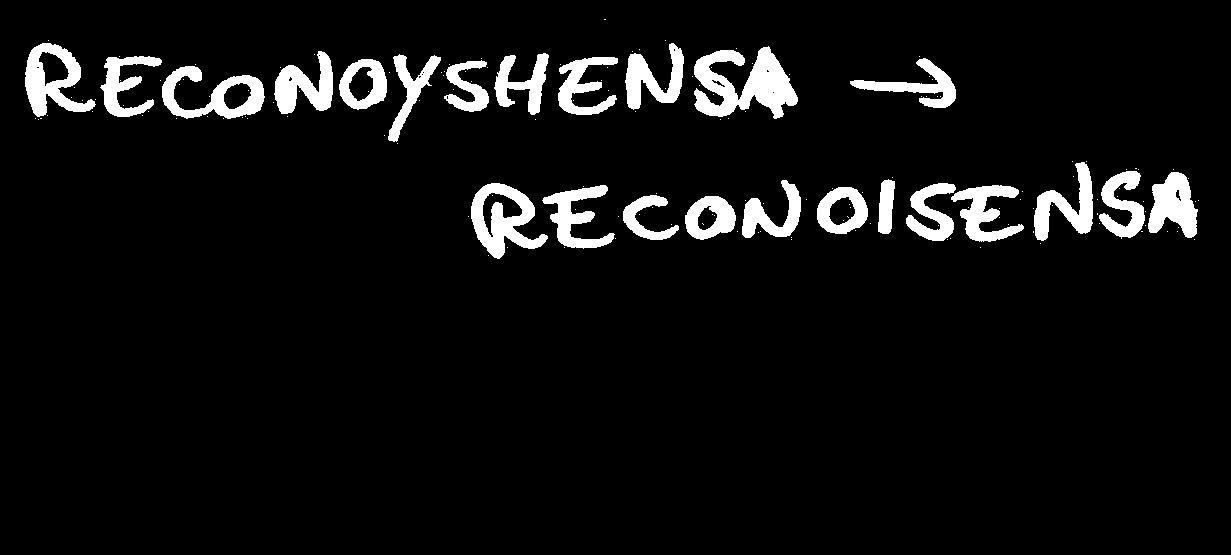 RECONOYSHENSA →
RECONOISENSA